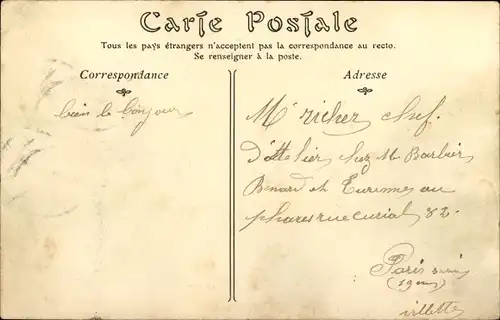 Carte Postale
Tous les pays étrangers n'acceptent pas la correspondance au recto.
Se renseigner à la poste.
Correspondance
Adresse
bien le bonjour
Mr richer chef.
d'attelier chez M Barbier
Benard et Turenne au
phares rue curial 82.
Paris
villette